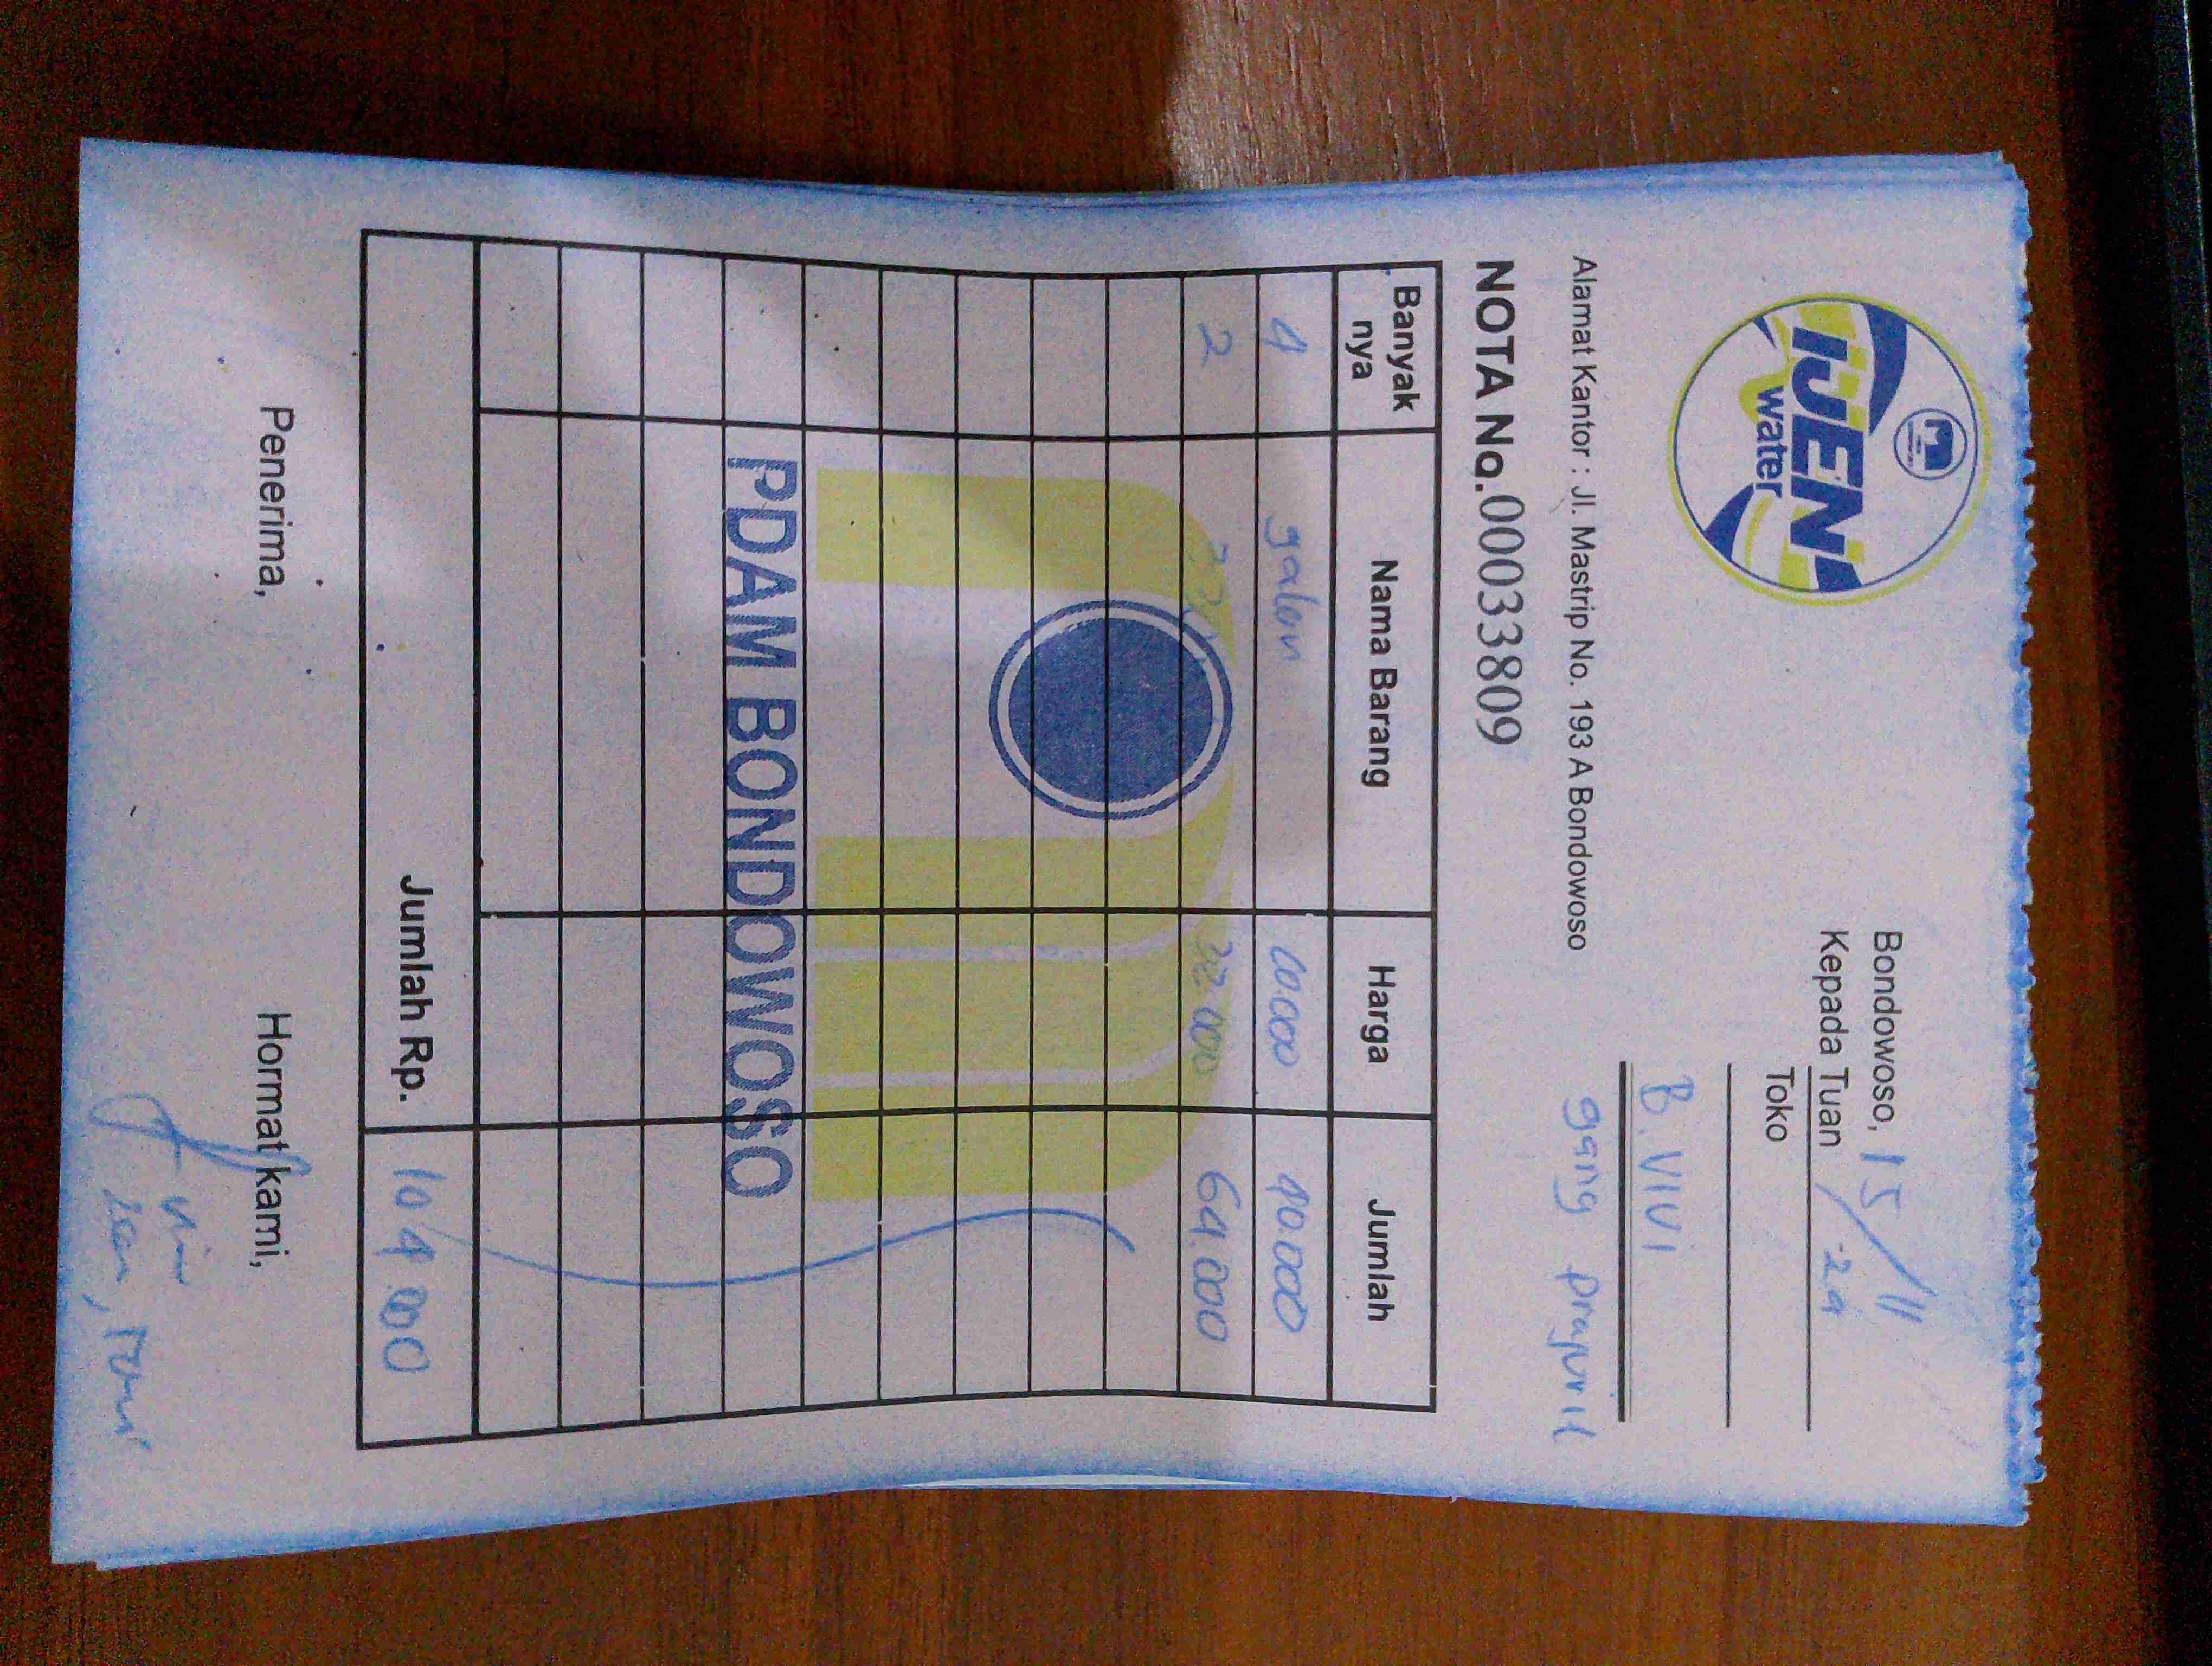 IJEN
water
Bondowoso, 15/11 '24
Kepada Tuan
Toko
B. VIVI
gang prajurit
Alamat Kantor : Jl. Mastrip No. 193 A Bondowoso
NOTA No. 00033809
Banyak nya Nama Barang Harga Jumlah
4 galon 10.000 40.000
2 32.000 64.000
PDAM BONDOWOSO
Jumlah Rp. 104.000
Penerima, Hormat kami,